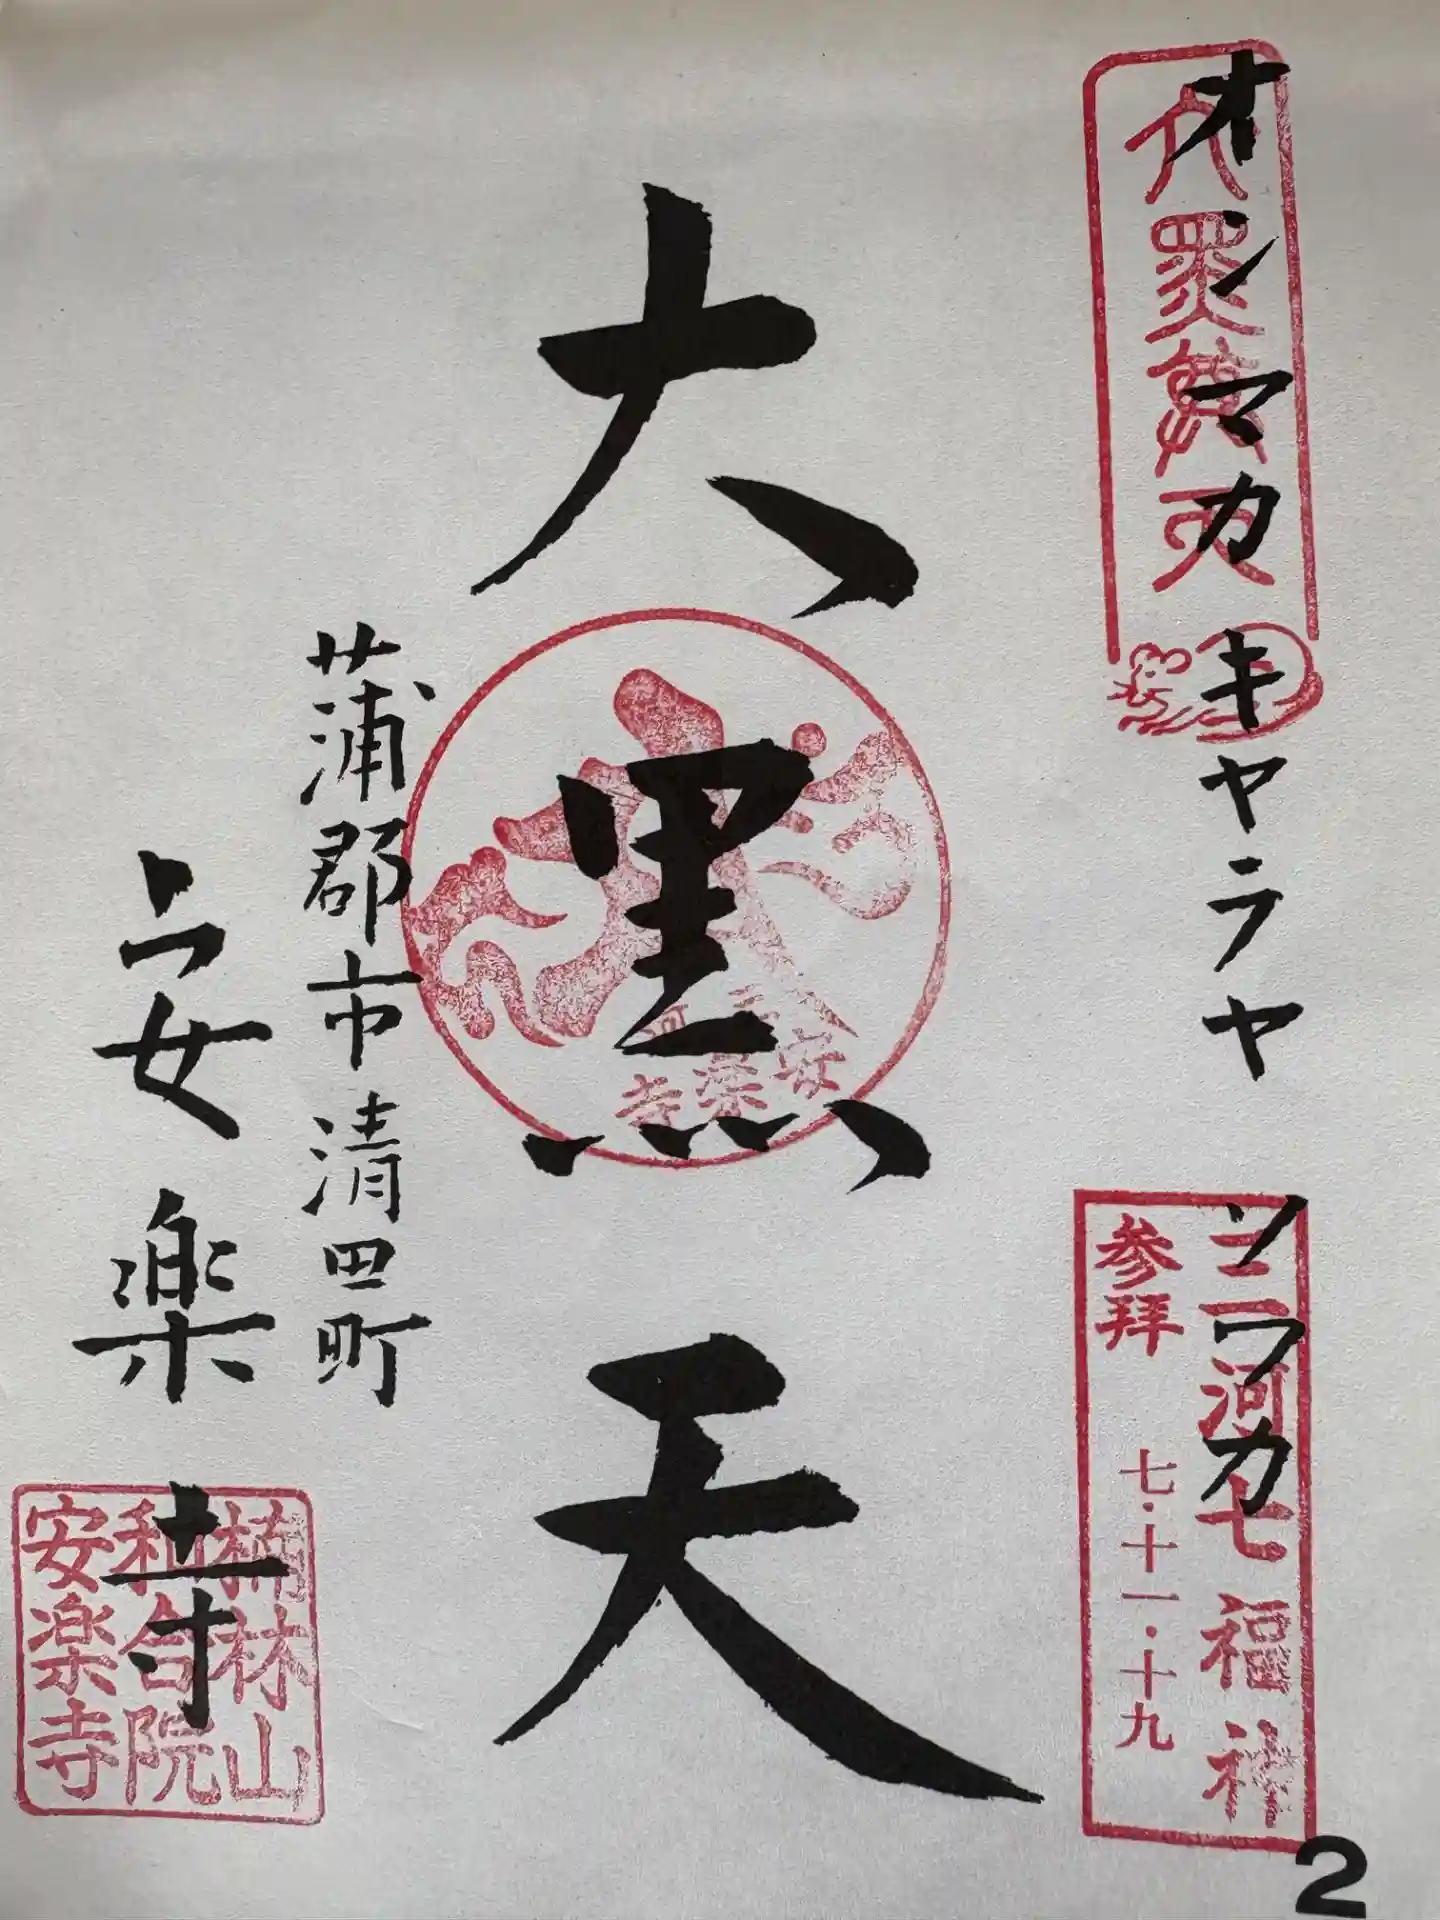 オンマカキャラヤ ソワカ
大黒尊天
三河七福神
参拝 七・十一・十九
大黒天
三河
安楽寺
蒲郡市清田町
安楽寺
楠林山
和合院
安楽寺
2